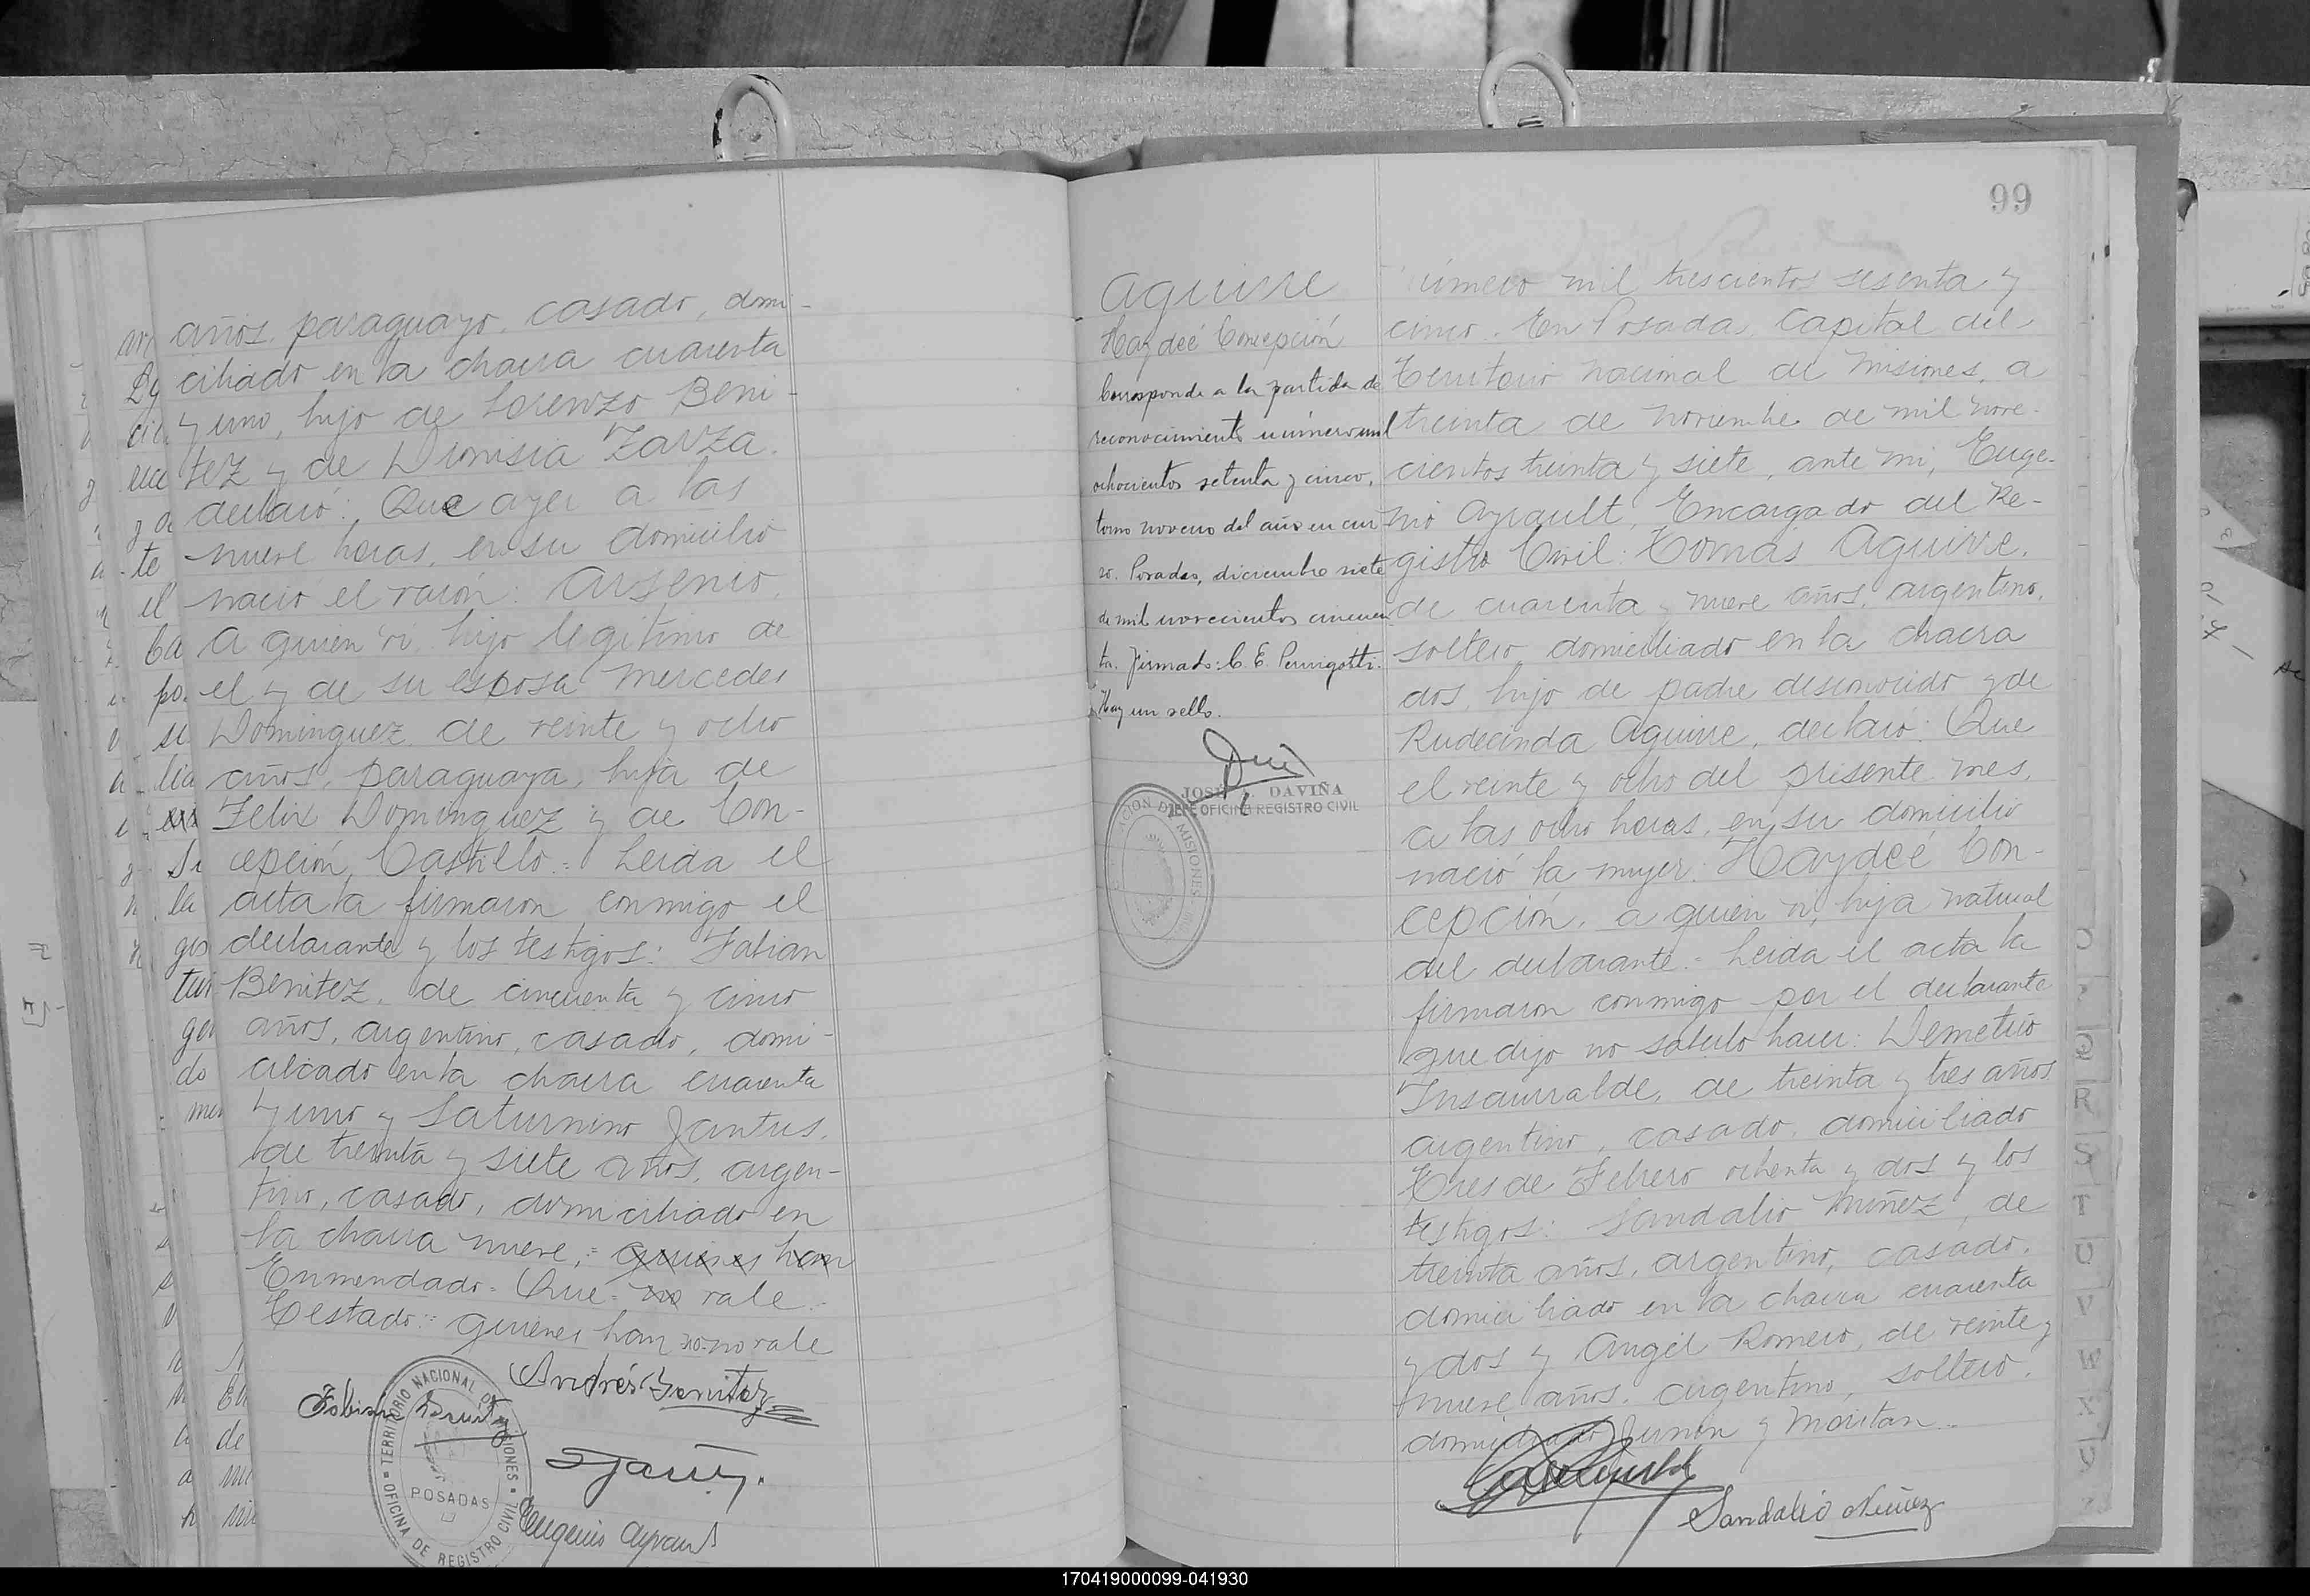 años, paraguayo, casado, domi-
ciliado en la chacra cuarenta
y uno, hijo de Lorenzo Beni-
tez y de Dionisia Zarza.
declaró: Que ayer a las
nueve horas, en su domicilio
nació el varón: Arsenio,
a quien vi, hijo legitimo de
el y de su esposa Mercedes
Dominguez, de veinte y ocho
años, paraguaya, hija de
Felix Dominguez y de Con-
cepción Castillo.= Leida el
acta la firmaron conmigo el
declarante y los testigos: Fabian
Benitez, de cincuenta y cinco
años, argentino, casado, domi-
ciliado en la chacra cuarenta
y uno y Saturnino Jantus,
de treinta y siete años, argen-
tino, casado, domiciliado en
la chacra nueve,= quienes han
Enmendado= Que= no vale.-
Testado:= quienes han no=no vale
Andrés Benitez
Fabian Benitez
TERRITORIO NACIONAL DE MISIONES
POSADAS
OFICINA DE REGISTRO CIVIL
Eugenio Ayrault
99
Aguirre
Haydeé Concepción
Corresponde a la partida de
reconocimiento número mil
ochocientos setenta y cinco,
tomo noveno del año en cur
so. Posadas, diciembre siete
de mil novecientos cincuen
ta. Firmado: C. E. Pernigotti.
Hay un sello.
JOSÉ DAVIÑA
JEFE OFICINA REGISTRO CIVIL
MISIONES
úmero mil trescientos sesenta y
cinco. En Posada, Capital del
Territorio Nacional de Misiones, a
treinta de noviembre de mil nove-
cientos treinta y siete, ante mi, Euge-
nio Ayrault, Encargado del Re-
gistro Civil: Tomas Aguirre,
de cuarenta y nueve años, argentino,
soltero, domiciliado en la chacra
dos, hijo de padre desconocido y de
Rudecinda Aguirre, declaró: Que
el veinte y ocho del presente mes,
a las ocho horas, en su domicilio
nació la mujer: Haydeé Con-
cepción, a quien vi, hija natural
del declarante.= Leida el acta la
firmaron conmigo por el declarante
que dijo no saberlo hacer: Demetrio
Insaurralde, de treinta y tres años
argentino, casado, domiciliado
Tres de Febrero ochenta y dos y los
testigos: Sandalio Nuñez, de
treinta años, argentino, casado,
domiciliado en la chacra cuarenta
y dos y Angel Romero, de veinte y
nueve años, argentino, soltero,
domiciliado Junin y Moritan.-
Sandalio Nuñez
Q
R
S
T
U
V
W
X
170419000099-041930